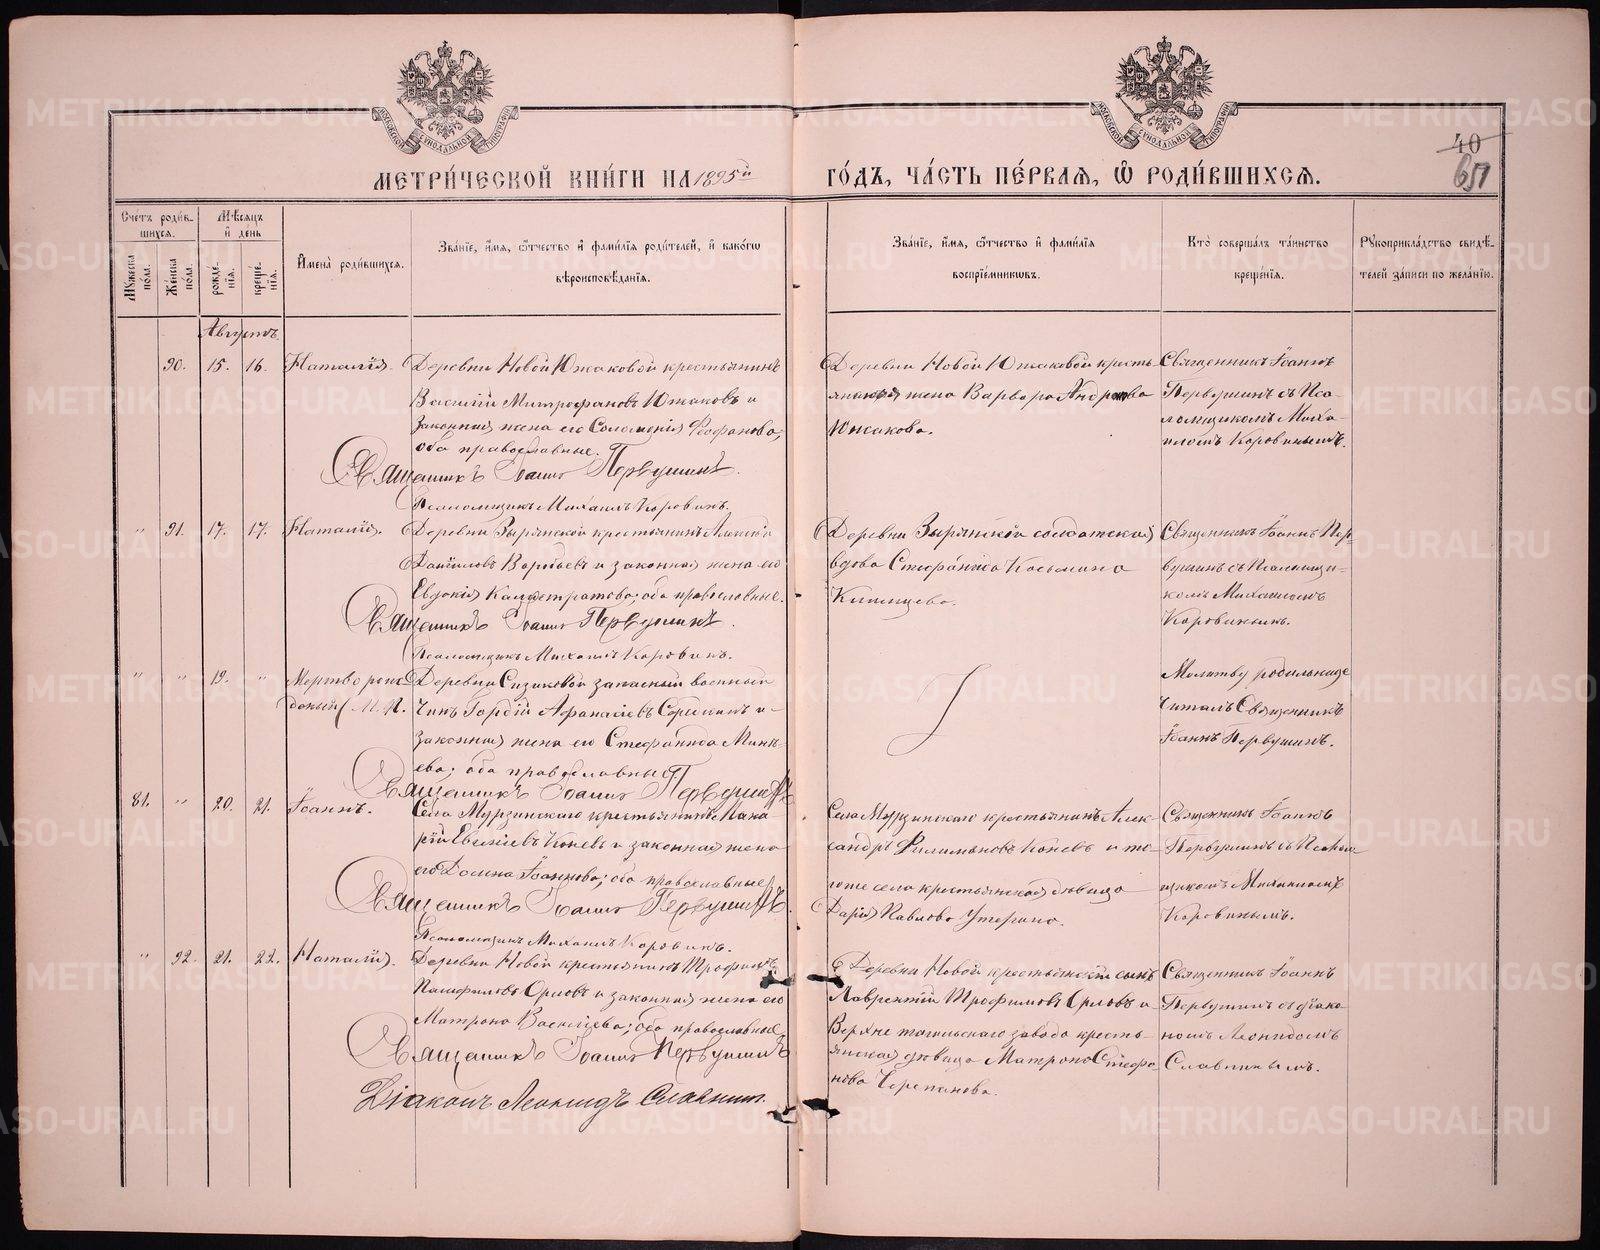 МОСКОВСКОЙ СѴНОДАЛЬНОЙ ТИПОГРАФІИ
МОСКОВСКОЙ СѴНОДАЛЬНОЙ ТИПОГРАФІИ
40
МЕТРИ́ЧЕСКОЙ КНИ́ГИ НА 1895й ГО́ДЪ, ЧА́СТЬ ПЕ́РВАЯ, Ѡ РОДИ́ВШИХСЯ.
Сче́тъ роди́в-
шихся.
Му́жеска по́ла.
Же́нска по́ла.
Мѣ́сяцъ и҆ день
рожде́-
нїя.
креще́-
нїя.
И҆мена̀ роди́вшихся.
Зва́нїе, и҆́мя, ѻ҆́тчество и҆ фами́лїя роди́телей, и҆ како́гѡ
вѣроисповѣ́данїя.
Зва́нїе, и҆́мя, ѻ҆́тчество и҆ фами́лїя
воспрїе́мниковъ.
Кто̀ соверша́лъ та́инство
креще́нїя.
Рꙋкоприкла́дство свидѣ́-
телей за́писи по жела́нїю.
Августъ.
90. 15. 16. Наталія.
Деревни Новой Южаковой крестьянинъ
Василій Митрофановъ Южаковъ и
законная жена его Соломонія Феофанова,
оба православные.
Священникъ Іоаннъ Первушинъ.
Псаломщикъ Михаилъ Коровинъ.
Деревни Новой Южаковой кресть-
янская жена Варвара
Южакова.
Священникъ Іоаннъ
Первушинъ съ Пса-
ломщикомъ Миха-
иломъ Коровинымъ.
" 91. 17. 17. Наталія.
Деревни Зырянской крестьянинъ Алексѣй
Даніиловъ Воробьевъ и законная жена его
Евдокія Каллистратова; оба православные.
Священникъ Іоаннъ Первушинъ.
Псаломщикъ Михаилъ Коровинъ.
Деревни Зырянской солдатская
вдова Стефанида Косьмина
Священникъ Іоаннъ Пер-
вушинъ съ Псаломщи-
комъ Михаиломъ
Коровинымъ.
" " 19. " Мертворож-
денный М. П.
Деревни Сизиковой запасный военный
чинъ Гордій Афанасіевъ Сорокинъ и
законная жена его Стефанида
оба православные.
Священникъ Іоаннъ Первушинъ
Молитву родильницѣ
читалъ Священникъ
Іоаннъ Первушинъ.
81. " 20. 21. Іоаннъ.
Села Мурзинскаго крестьянинъ Мака-
рій Евсевіевъ Коневъ и законная жена
его Домна Іоаннова; оба православные.
Священникъ Іоаннъ Первушинъ.
Псаломщикъ Михаилъ Коровинъ.
Села Мурзинскаго крестьянинъ Алек-
сандръ Филимоновъ Коневъ и то-
гоже села крестьянская дѣвица
Дарія Павлова
Священникъ Іоаннъ
Первушинъ съ Псалом-
щикомъ Михаиломъ
Коровинымъ.
" 92. 21. 22. Наталія.
Деревни Новой крестьянинъ Трофимъ
Памфиловъ Орловъ и законная жена его
Матрона Васильева; оба православные.
Священникъ Іоаннъ Первушинъ
Діаконъ Леонидъ Славнинъ.
Деревни Новой крестьянскій сынъ
Лаврентій Трофимовъ Орловъ и
Верхнетагильскаго завода кресть-
янская дѣвица Матрона Стефа-
нова Черепанова.
Священникъ Іоаннъ
Первушинъ съ діако-
номъ Леонидомъ
Славнинымъ.
METRIKI.GASO-URAL.RU